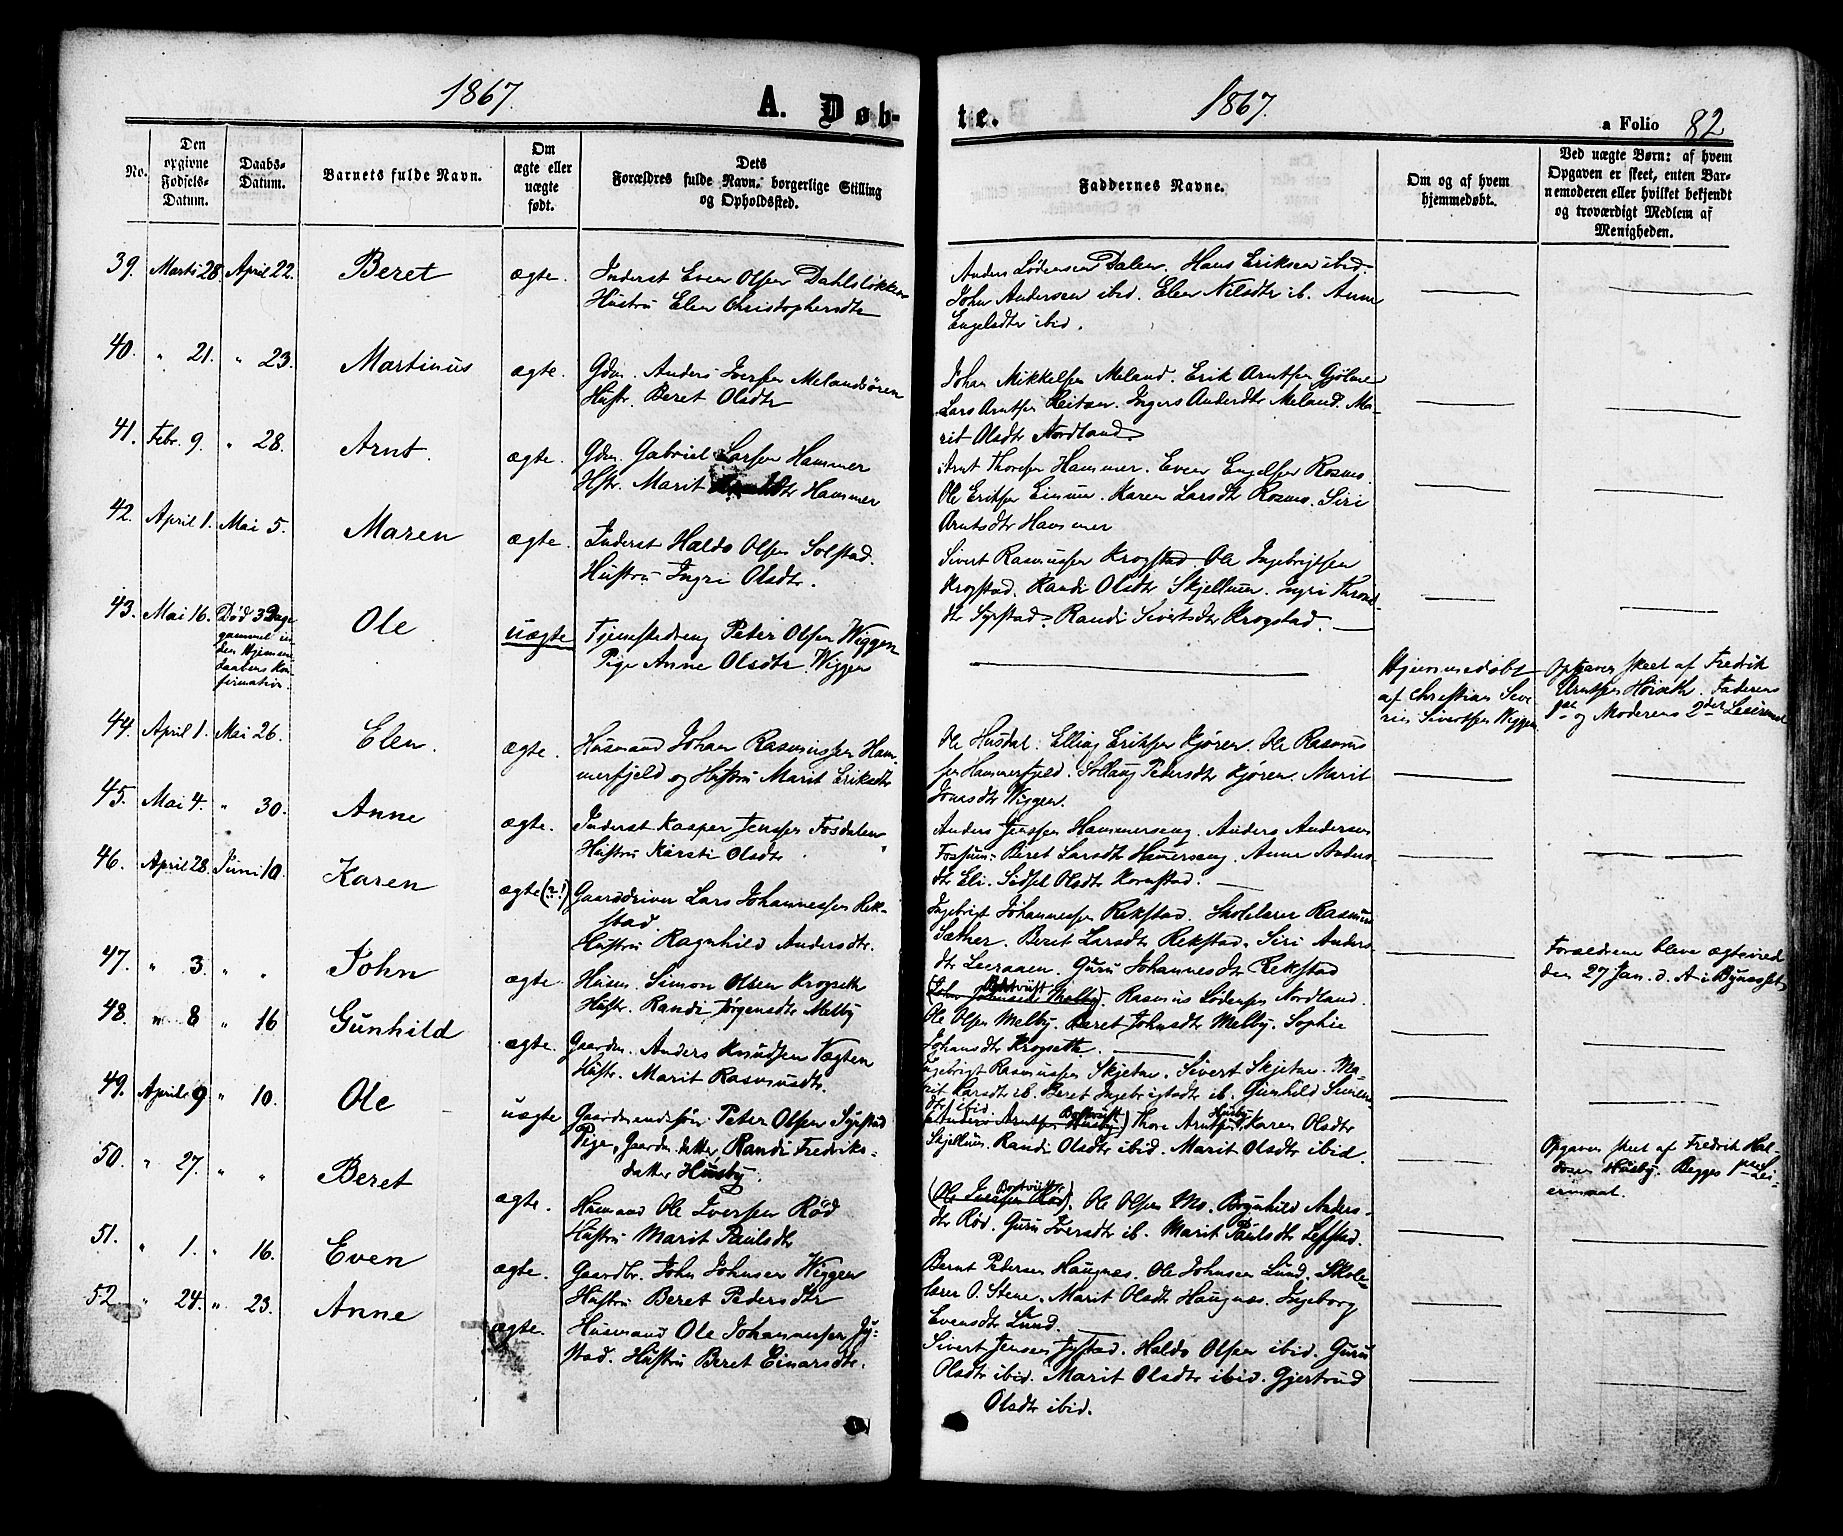 1867.
A. Døb-
te.
1867.
a Folio 82
No.
Den opgivne Fødsels-Datum.
Daabs-Datum.
Barnets fulde Navn.
Om ægte eller uægte født.
Dets Forældres fulde Navn, borgerlige Stilling og Opholdssted.
Faddernes Navne.
Om og af hvem hjemmedøbt.
Ved uægte Børn: af hvem Opgaven er skeet, enten Barnemoderen eller hvilket bekjendt og troværdigt Medlem af Menigheden.
39. Marts 28. April 22. Beret ægte. Inderst Even Olsen Dahlsløkken
Hustru Elen Christophersdtr
Anders Lødensen Dalen. Hans Eriksen ibid.
John Andersen ibid. Elen Nilsdtr ib. Anne
Engelsdtr ibid.
40. " 21. " 23. Martinus ægte. Gdm. Anders Iversen Melandsøren
Hustr. Beret Olsdtr
Johan Mikkelsen Meland. Erik Arntsen Gjølme
Lars Arntsen Reitan. Inger Andersdtr Meland. Ma-
rit Olsdtr Nordland.
41. Febr. 9. " 28. Arnt. ægte. Gdm. Gabriel Larsen Hammer
Hstr. Marit Hammer
Arnt Thoresen Hammer. Even Engelsen Rosmo.
Ole Eriksen Einum. Karen Larsdtr Rosmo. Siri
Arntsdtr Hammer
42. April 1. Mai 5. Maren ægte. Inderst Haldo Olsen Solstad.
Hustru Ingri Olsdtr.
Sivert Rasmussen Krogstad. Ole Ingebrigtsen
Krogstad. Randi Olsdtr Skjellum. Ingri Thrond-
dtr Syrstad. Randi Sivertsdtr Krogstad.
43. Mai 16. Død 3 Dage
gammel in
den Hjemme
daabens Kon
firmation.
Ole uægte Tjenestedreng Peter Olsen Wiggen
Pige Anne Olsdtr Wiggen
Hjemmedøbt
af Christian Seve
rin Sivertsen Wiggen
Opgaven skeet af Fredrik
Arntsen Høiseth. Faderens
1ste og Moderens 2det Leiermaal
44. April 1. Mai 26. Elen. ægte. Husmand Johan Rasmussen Ham-
merfjeld og Hustru Marit Eriksdtr
Ole Husdal. Elling Eriksen Kjøren. Ole Rasmus
sen Hammerfjeld. Sollaug Pedersdtr Kjøren. Marit
Jonsdtr Wiggen.
45. Mai 4. " 30. Anne ægte. Inderst Kasper Jenssen Fosdalen
Hustru Kirsti Olsdtr
Anders Jenssen Hammerseng. Anders Andersen
Fossum. Beret Larsdtr Hammerseng. Anne Anders-
dtr Eli. Sidsel Olsdtr Kornstad.
46. April 28. Juni 10. Karen ægte (?!) Gaardbruger Lars Johannessen Rek-
stad.
Hustru Ragnhild Andersdtr.
Ingebrigt Johannessen Rekstad. Skolelærer Rasmus
Sæther. Berit Larsdtr Rekstad. Siri Anders-
dtr Leeraaen. Guru Johannesdtr Rekstad
Forældrene bleve ægteviede
den 27 Jan. d. A. i Bynæsset
47. " 3. " " John ægte. Husm. Simon Olsen Krogseth
Hustr. Randi Jørgensdtr Melby
(John Johnsen Melby) Bortvist. Rasmus Lødensen Nordland.
Ole Olsen Melby. Beret Johnsdtr Melby. Sophie
Johansdtr Krogseth.
48. " 8 " 16 Gunhild ægte. Gaardm. Anders Knudsen Vægten
Hustr. Marit Rasmusdtr.
Ingebrigt Rasmussen Skjetne. Sivert Skjetne. Ma-
rit Larsdtr ib. Beret Ingebrigtsdtr ib. Gunhild Simens
dtr ibid.
49. April 9 " 10. Ole uægte Gaardmandssøn Peter Olsen Syrstad
Pige, Gaardm. datter, Randi Fredriks-
datter Husby.
(Anders Arntsen Husby) Bortvist Thore Arntsen Husby. Karen Olsdtr
Skjellum. Randi Olsdtr ibid. Marit Olsdtr ibid.
Opgaven skeet af Fredrik Hal-
dosen Husby. Begges 1ste Lei-
ermaal.
50. " 27. " " Beret ægte. Husmand Ole Iversen Rød
Hustru Marit Paulsdtr
(Ole Larssen Rød) Bortvist. Ole Olsen Mo. Brynhild Anders-
dtr Rød. Guru Iversdtr ib. Marit Paulsdtr Lefstad.
51. " 1. " 16. Even ægte. Gaardbr. John Johnsen Wiggen
Hustru Beret Pedersdtr
Bernt Pedersen Haugnes. Ole Johnsen Lund. Skole-
lærer O. Stene. Marit Olsdtr Haugnes. Ingeborg
Evensdtr Lund.
52. " 24. " 23. Anne ægte. Husmand Ole Johannessen Jy-
stad. Hustru Beret Einarsdtr.
Sivert Jensen Jystad. Haldo Olsen ibid. Guru
Olsdtr ibid. Marit Olsdtr ibid. Gjertrud
Olsdtr ibid.